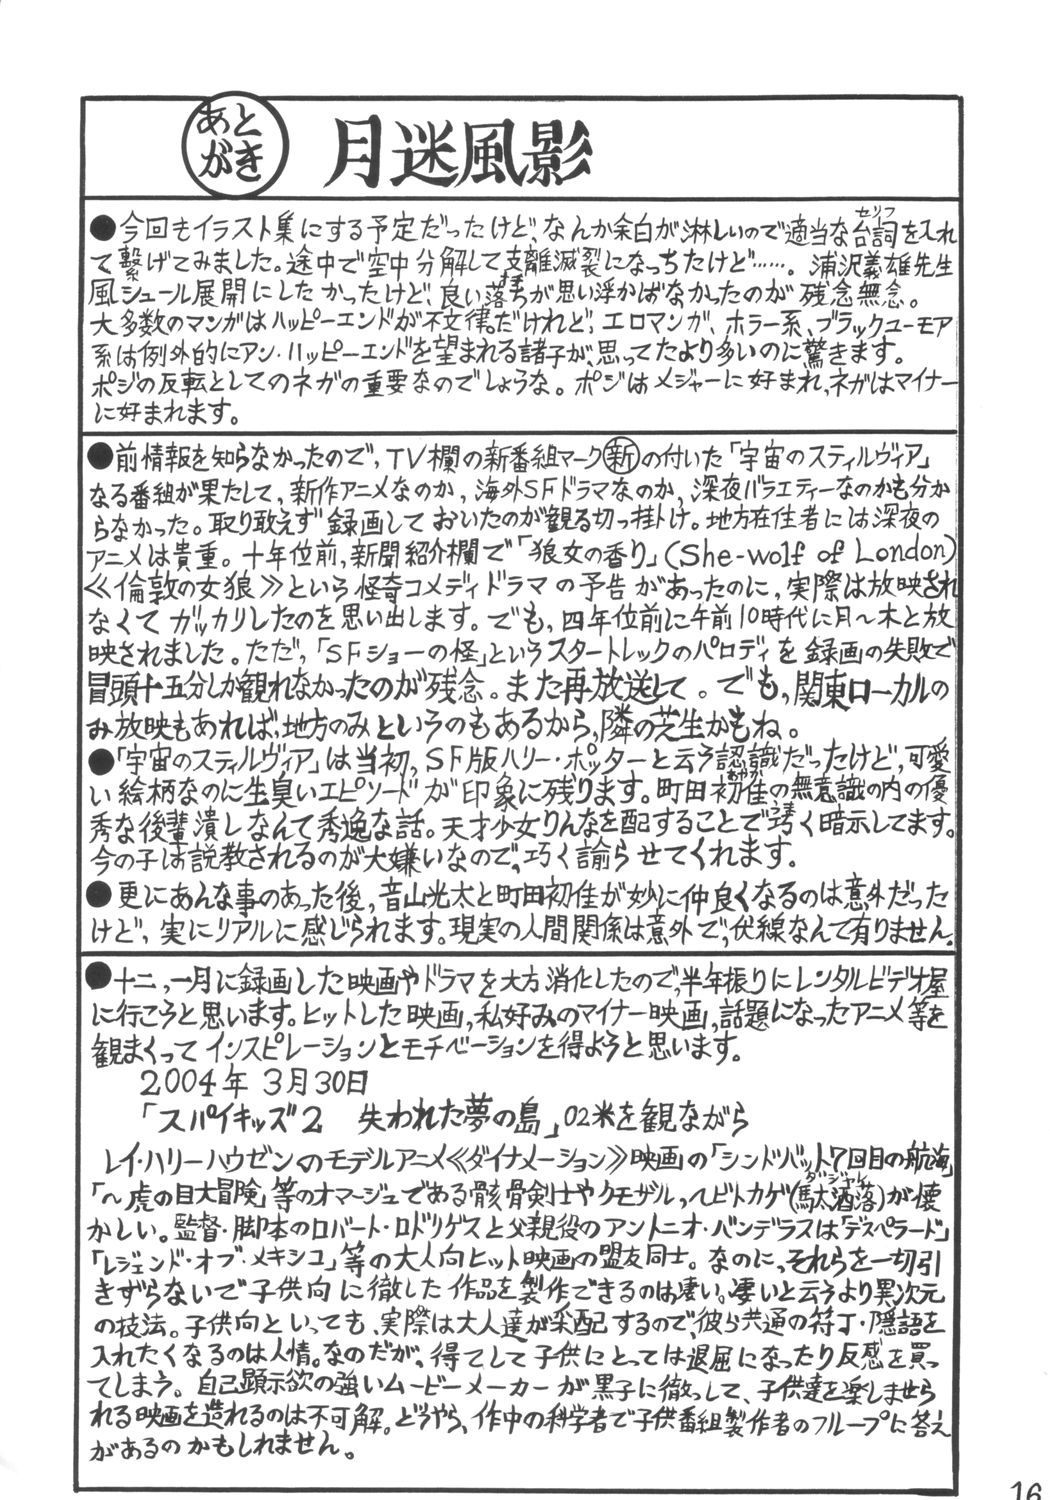 あとがき 月迷風影
●今回もイラスト集にする予定だったけど、なんか余白が淋しいので適当な台詞(セリフ)を入れ
て繋げてみました。途中で空中分解して支離滅裂になっちたけど……。浦沢義雄先生
風シュール展開にしたかったけど、良い落ち(オチ)が思い浮かばなかったのが残念無念。
大多数のマンガはハッピーエンドが不文律だけれど、エロマンガ、ホラー系、ブラックユーモア
系は例外的にアン・ハッピーエンドを望まれる諸子が、思ってたより多いのに驚きます。
ポジの反転としてのネガの重要なのでしょうな。ポジはメジャーに好まれ、ネガはマイナー
に好まれます。
●前情報を知らなかったので、TV欄の新番組マーク新の付いた「宇宙のスティルヴィア」
なる番組が果たして、新作アニメなのか、海外SFドラマなのか、深夜バラエティーなのかも分か
らなかった。取り敢えず録画しておいたのが観る切っ掛け。地方在住者には深夜の
アニメは貴重。十年位前、新聞紹介欄で「狼女の香り」(She-wolf of London)
≪倫敦の女狼≫という怪奇コメディドラマの予告があったのに、実際は放映され
なくてガッカリしたのを思い出します。でも、四年位前に午前10時代に月〜木と放
映されました。ただ、「SFショーの怪」というスタートレックのパロディを録画の失敗で
冒頭十五分しか観れなかったのが残念。また再放送して。でも、関東ローカルの
み放映もあれば、地方のみというのもあるから、隣の芝生かもね。
●「宇宙のスティルヴィア」は当初、SF版ハリー・ポッターと云う認識だったけど、可愛
い絵柄なのに生臭いエピソードが印象に残ります。町田初佳の無意識の内の優
秀な後輩潰しなんて秀逸な話。天才少女りんなを配することで巧く暗示してます。
今の子は説教されるのが大嫌いなので、巧く諭らせてくれます。
●更にあんな事のあった後、音山光太と町田初佳が妙に仲良くなるのは意外だった
けど、実にリアルに感じられます。現実の人間関係は意外で、伏線なんて有りません。
●十二、一月に録画した映画やドラマを大方消化したので、半年振りにレンタルビデオ屋
に行こうと思います。ヒットした映画、私好みのマイナー映画、話題になったアニメ等を
観まくってインスピレーションとモチベーションを得ようと思います。
2004年 3月30日
「スパイキッズ2 失われた夢の島」02米を観ながら
レイ・ハリーハウゼンのモデルアニメ≪ダイナメーション≫映画の「シンドバット7回目の航海」
「〜虎の目大冒険」等のオマージュである骸骨剣士やクモザル、ヘビトカゲ(馬太洒落(ダジャレ)が懐
かしい。監督・脚本のロバート・ロドリゲスと父親役のアントニオ・バンデラスは「デスペラード」
「レジェンド・オブ・メキシコ」等の大人向ヒット映画の盟友同士。なのに、それらを一切引
きずらないで子供向に徹した作品を製作できるのは凄い。凄いと云うより異次元
の技法。子供向といっても、実際は大人達が采配するので、彼ら共通の符丁・隠語を
入れたくなるのは人情。なのだが、得てして子供にとっては退屈になったり反感を買っ
てしまう。自己顕示欲の強いムービーメーカーが黒子に徹っして、子供達を楽しませら
れる映画を造れるのは不可解。どうやら、作中の科学者で子供番組製作者のフループに答え
があるのかもしれません。
16